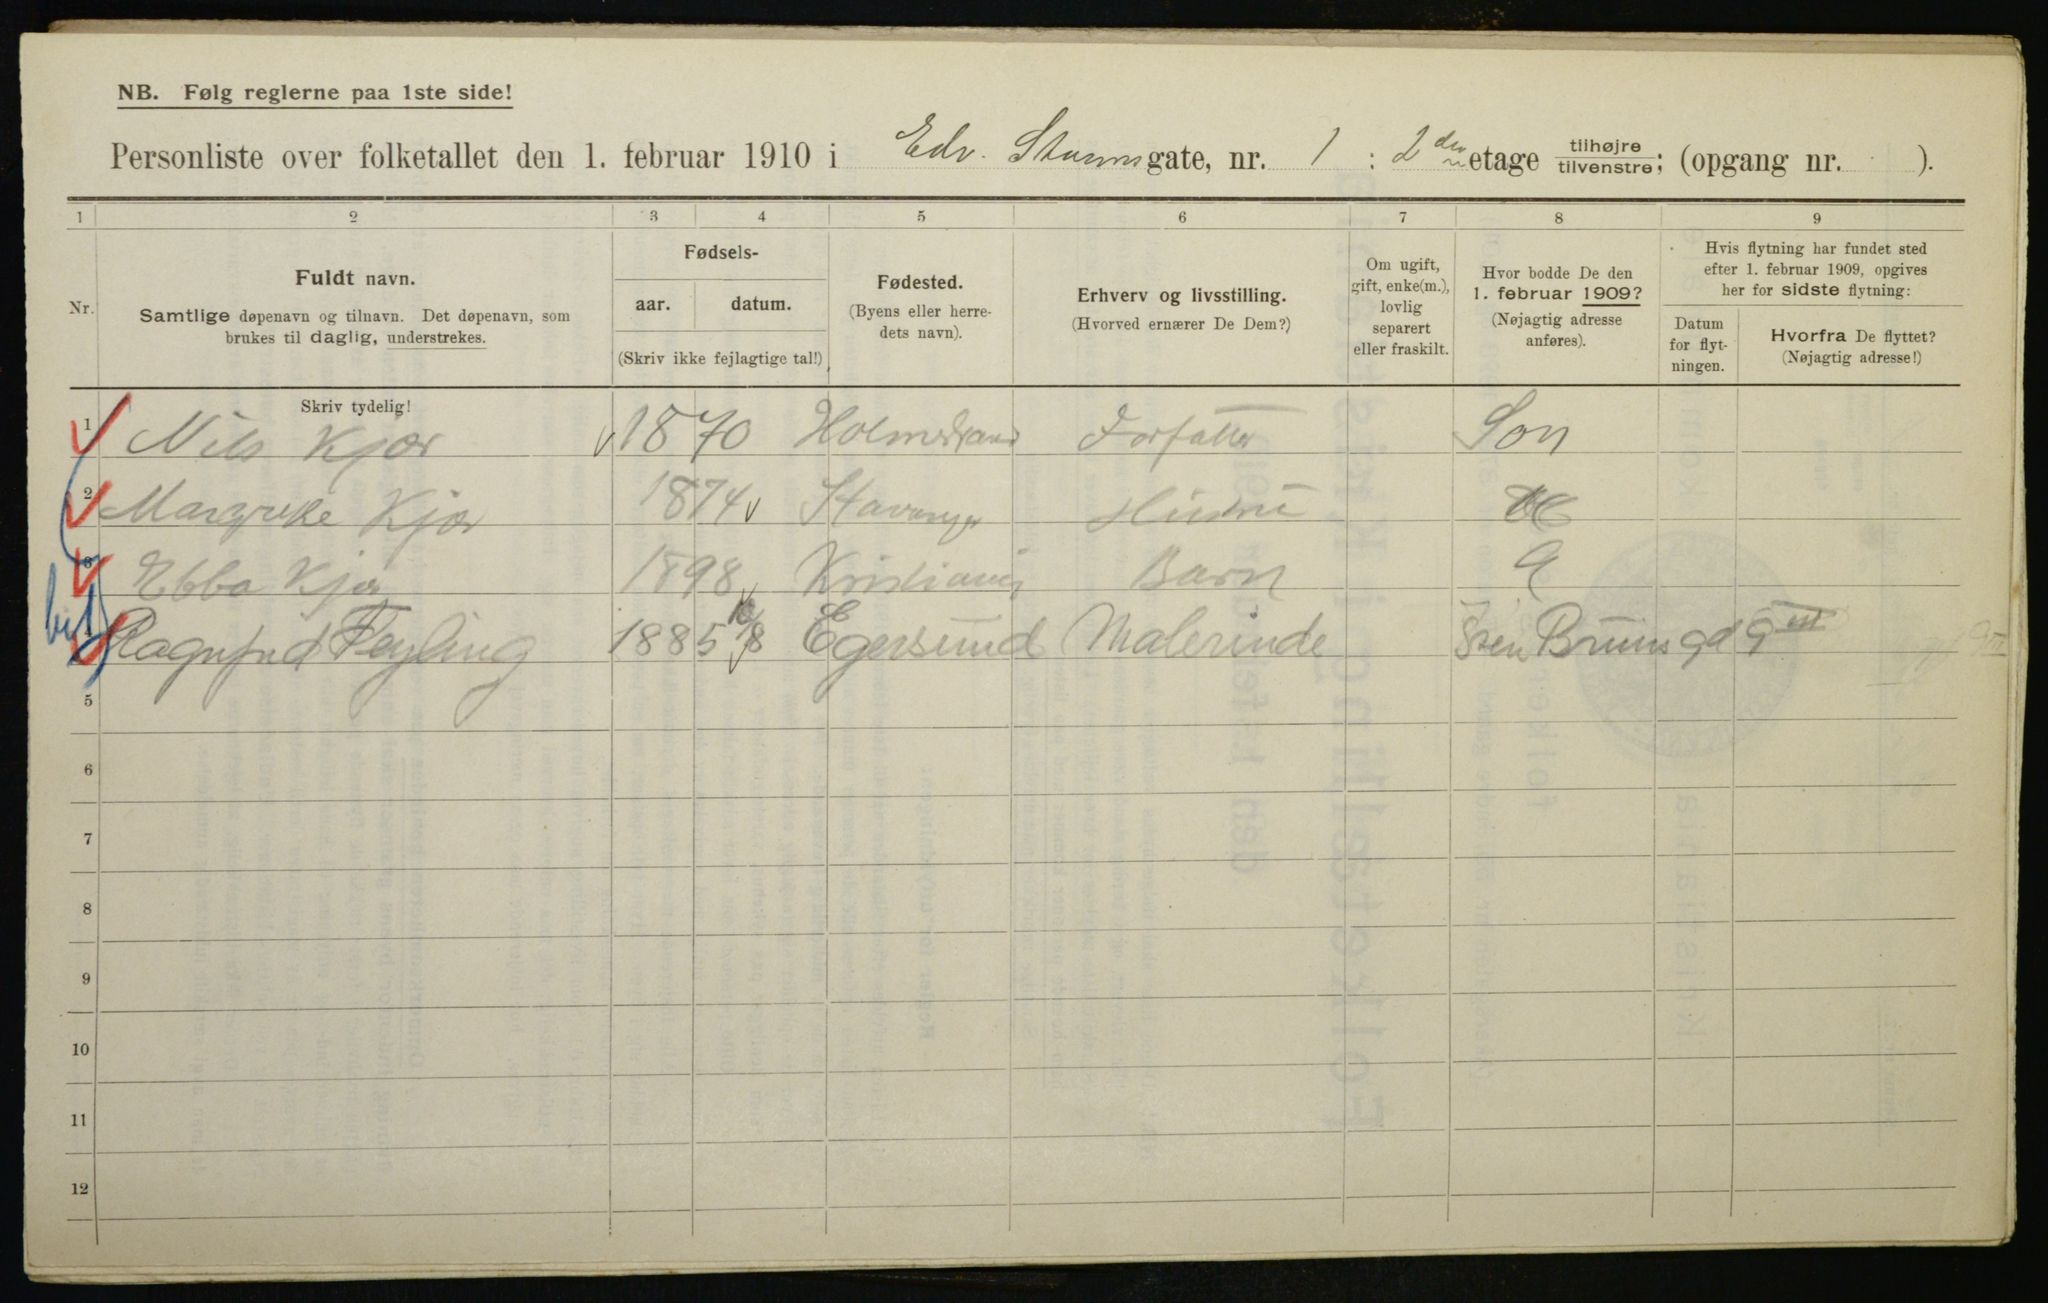 NB. Følg reglerne paa 1ste side!
Personliste over folketallet den 1. februar 1910 i Edv. Stormsgate, nr. 1 : 2den etage tilhøjre tilvenstre; (opgang nr. ).
1 2 3 4 5 6 7 8 9
Nr.
Fuldt navn.
Samtlige døpenavn og tilnavn. Det døpenavn, som
brukes til daglig, understrekes.
Fødsels-
aar. datum.
(Skriv ikke fejlagtige tal!)
Fødested.
(Byens eller herre-
dets navn).
Erhverv og livsstilling.
(Hvorved ernærer De Dem?)
Om ugift,
gift, enke(m.),
lovlig
separert
eller fraskilt.
Hvor bodde De den
1. februar 1909?
(Nøjagtig adresse
anføres).
Hvis flytning har fundet sted
efter 1. februar 1909, opgives
her for sidste flytning:
Datum
for flyt-
ningen.
Hvorfra De flyttet?
(Nøjagtig adresse!)
Skriv tydelig!
1 Nils Kjær 1870 Holmestrand Forfatter Son
2 Margrethe Kjær 1874 Stavanger Hustru
3 Ebba Kjær 1898 Kristiania Barn
4 Ragnfrid Feyling 1885 8 Egersund Malerinde Sven Bruunsgd 9 III
5
6
7
8
9
10
11
12